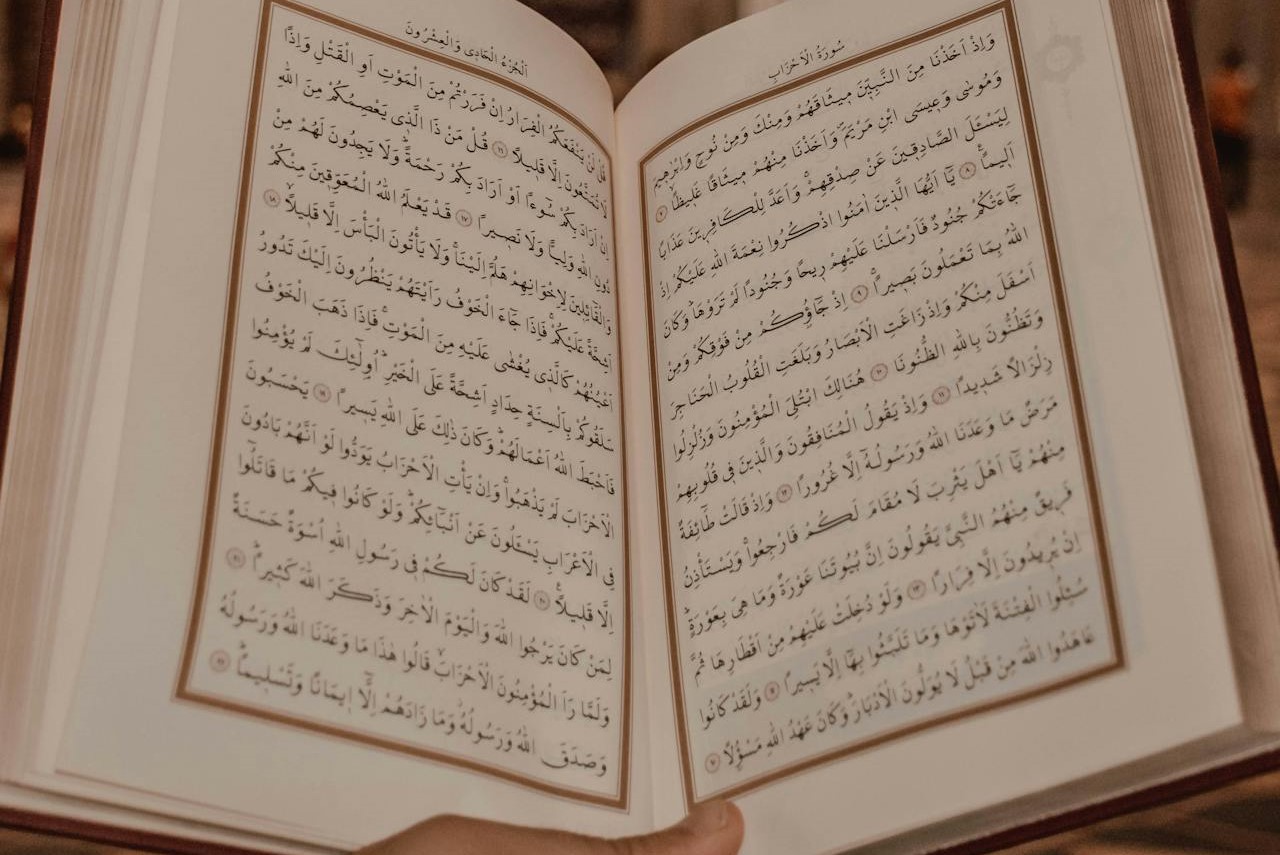 سُورَةُ الْاَحْزَابِ
وَاِذْ اَخَذْنَا مِنَ النَّبِيّ۪نَ م۪يثَاقَهُمْ وَمِنْكَ وَمِنْ نُوحٍ وَاِبْرٰه۪يمَ
وَمُوسٰى وَع۪يسَى ابْنِ مَرْيَمَۖ وَاَخَذْنَا مِنْهُمْ م۪يثَاقًا غَل۪يظًاۙ ﴿٧﴾
لِيَسْـَٔلَ الصَّادِق۪ينَ عَنْ صِدْقِهِمْۚ وَاَعَدَّ لِلْكَافِر۪ينَ عَذَابًا
اَل۪يمًا۟ ﴿٨﴾ يَٓا اَيُّهَا الَّذ۪ينَ اٰمَنُوا اذْكُرُوا نِعْمَةَ اللّٰهِ عَلَيْكُمْ اِذْ
جَٓاءَتْكُمْ جُنُودٌ فَاَرْسَلْنَا عَلَيْهِمْ ر۪يحًا وَجُنُودًا لَمْ تَرَوْهَاۜ وَكَانَ
اللّٰهُ بِمَا تَعْمَلُونَ بَص۪يرًاۚ ﴿٩﴾ اِذْ جَٓاؤُ۫كُمْ مِنْ فَوْقِكُمْ وَمِنْ
اَسْفَلَ مِنْكُمْ وَاِذْ زَاغَتِ الْاَبْصَارُ وَبَلَغَتِ الْقُلُوبُ الْحَنَاجِرَ
وَتَظُنُّونَ بِاللّٰهِ الظُّنُونَا ﴿١٠﴾ هُنَالِكَ ابْتُلِيَ الْمُؤْمِنُونَ وَزُلْزِلُوا
زِلْزَالًا شَد۪يدًا ﴿١١﴾ وَاِذْ يَقُولُ الْمُنَافِقُونَ وَالَّذ۪ينَ ف۪ي قُلُوبِهِمْ
مَرَضٌ مَا وَعَدَنَا اللّٰهُ وَرَسُولُهُٓ اِلَّا غُرُورًا ﴿١٢﴾ وَاِذْ قَالَتْ طَٓائِفَةٌ
مِنْهُمْ يَٓا اَهْلَ يَثْرِبَ لَا مُقَامَ لَكُمْ فَارْجِعُواۚ وَيَسْتَأْذِنُ
فَر۪يقٌ مِنْهُمُ النَّبِيَّ يَقُولُونَ اِنَّ بُيُوتَنَا عَوْرَةٌ وَمَا هِيَ بِعَوْرَةٍۚ
اِنْ يُر۪يدُونَ اِلَّا فِرَارًا ﴿١٣﴾ وَلَوْ دُخِلَتْ عَلَيْهِمْ مِنْ اَقْطَارِهَا ثُمَّ
سُئِلُوا الْفِتْنَةَ لَاٰتَوْهَا وَمَا تَلَبَّثُوا بِهَٓا اِلَّا يَس۪يرًا ﴿١٤﴾ وَلَقَدْ كَانُوا
عَاهَدُوا اللّٰهَ مِنْ قَبْلُ لَا يُوَلُّونَ الْاَدْبَارَۜ وَكَانَ عَهْدُ اللّٰهِ مَسْؤُ۫لًا ﴿١٥﴾
اَلْجُزْءُ الْحَاد۪ي وَالْعِشْرُونَ
قُلْ لَنْ يَنْفَعَكُمُ الْفِرَارُ اِنْ فَرَرْتُمْ مِنَ الْمَوْتِ اَوِ الْقَتْلِ وَاِذًا
لَا تُمَتَّعُونَ اِلَّا قَل۪يلًا ﴿١٦﴾ قُلْ مَنْ ذَا الَّذ۪ي يَعْصِمُكُمْ مِنَ اللّٰهِ
اِنْ اَرَادَ بِكُمْ سُٓوءًا اَوْ اَرَادَ بِكُمْ رَحْمَةًۜ وَلَا يَجِدُونَ لَهُمْ مِنْ
دُونِ اللّٰهِ وَلِيًّا وَلَا نَص۪يرًا ﴿١٧﴾ قَدْ يَعْلَمُ اللّٰهُ الْمُعَوِّق۪ينَ مِنْكُمْ
وَالْقَٓائِل۪ينَ لِاِخْوَانِهِمْ هَلُمَّ اِلَيْنَاۚ وَلَا يَأْتُونَ الْبَأْسَ اِلَّا قَل۪يلًاۙ ﴿١٨﴾
اَشِحَّةً عَلَيْكُمْۚ فَاِذَا جَٓاءَ الْخَوْفُ رَاَيْتَهُمْ يَنْظُرُونَ اِلَيْكَ تَدُورُ
اَعْيُنُهُمْ كَالَّذ۪ي يُغْشٰى عَلَيْهِ مِنَ الْمَوْتِۚ فَاِذَا ذَهَبَ الْخَوْفُ
سَلَقُوكُمْ بِاَلْسِنَةٍ حِدَادٍ اَشِحَّةً عَلَى الْخَيْرِۜ اُو۬لٰٓئِكَ لَمْ يُؤْمِنُوا
فَاَحْبَطَ اللّٰهُ اَعْمَالَهُمْۜ وَكَانَ ذٰلِكَ عَلَى اللّٰهِ يَس۪يرًا ﴿١٩﴾ يَحْسَبُونَ
الْاَحْزَابَ لَمْ يَذْهَبُواۚ وَاِنْ يَأْتِ الْاَحْزَابُ يَوَدُّوا لَوْ اَنَّهُمْ بَادُونَ
فِي الْاَعْرَابِ يَسْـَٔلُونَ عَنْ اَنْبَٓائِكُمْۜ وَلَوْ كَانُوا ف۪يكُمْ مَا قَاتَلُٓوا
اِلَّا قَل۪يلًا۟ ﴿٢٠﴾ لَقَدْ كَانَ لَكُمْ ف۪ي رَسُولِ اللّٰهِ اُسْوَةٌ حَسَنَةٌ
لِمَنْ كَانَ يَرْجُوا اللّٰهَ وَالْيَوْمَ الْاٰخِرَ وَذَكَرَ اللّٰهَ كَث۪يرًاۜ ﴿٢١﴾
وَلَمَّا رَاَ الْمُؤْمِنُونَ الْاَحْزَابَۙ قَالُوا هٰذَا مَا وَعَدَنَا اللّٰهُ وَرَسُولُهُ
وَصَدَقَ اللّٰهُ وَرَسُولُهُۘ وَمَا زَادَهُمْ اِلَّٓا ا۪يمَانًا وَتَسْل۪يمًاۜ ﴿٢٢﴾